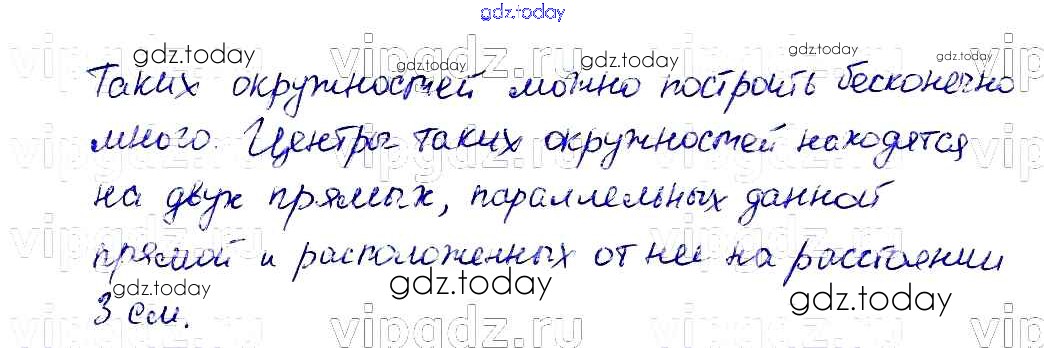 gdz.today
Таких окружностей можно построить бесконечно
много. Центры таких окружностей находятся
на двух прямых, параллельных данной
прямой и расположенных от нее на расстоянии
3 см.
vipgdz.ru
gdz.today
gdz.today
gdz.today
gdz.today
gdz.today
vipgdz.ru
vipgdz.ru
gdz.today
gdz.today
gdz.today
vipgdz.ru
vipgdz.ru